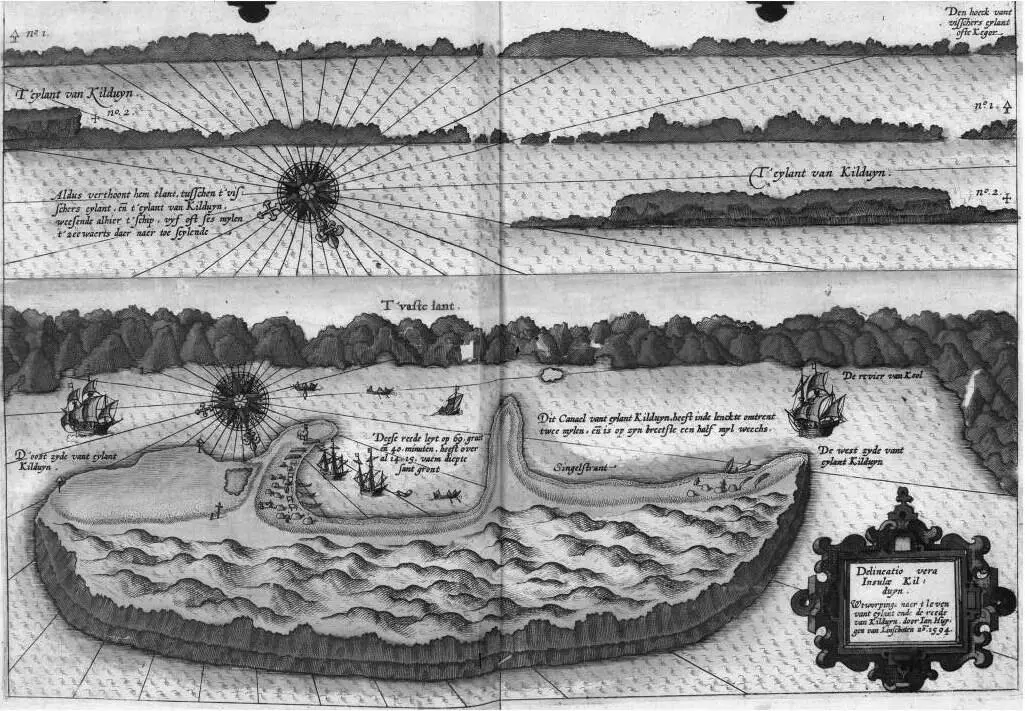 nº 1.
Den hoeck vant
visschers eylant
ofte Kegor.
T'eylant van Kilduyn.
nº. 2.
nº 1.
Aldus verthoont hem tlant, tusschen t'vis:
schers eylant, eñ t'eylant van Kilduyn,
weesende alhier t'schip, vyf oft ses mylen
t'zeewaerts daer naer toe seylende
T'eylant van Kilduyn.
nº 2.
T'vaste lant.
De revier van Kool
Dit Canael vant eylant Kilduyn, heeft inde lenckte omtrent
twee mylen, eñ is op zyn breetste een half myl weechs.
Deese reede leyt op 69. grad
eñ 40. minuten, heeft over
al 14. 15. vaem diepte
sant gront
D'oost zyde vant eylant
Kilduyn.
De west zyde vant
eylant Kilduyn
Singelstrant
Delineatio vera
Insulæ Kil:
duyn.
Wtworpinge naer t leven
vant eylant ende de reede
van Kilduyn, door Ian Huy-
gen van Linschoten aº. 1594.